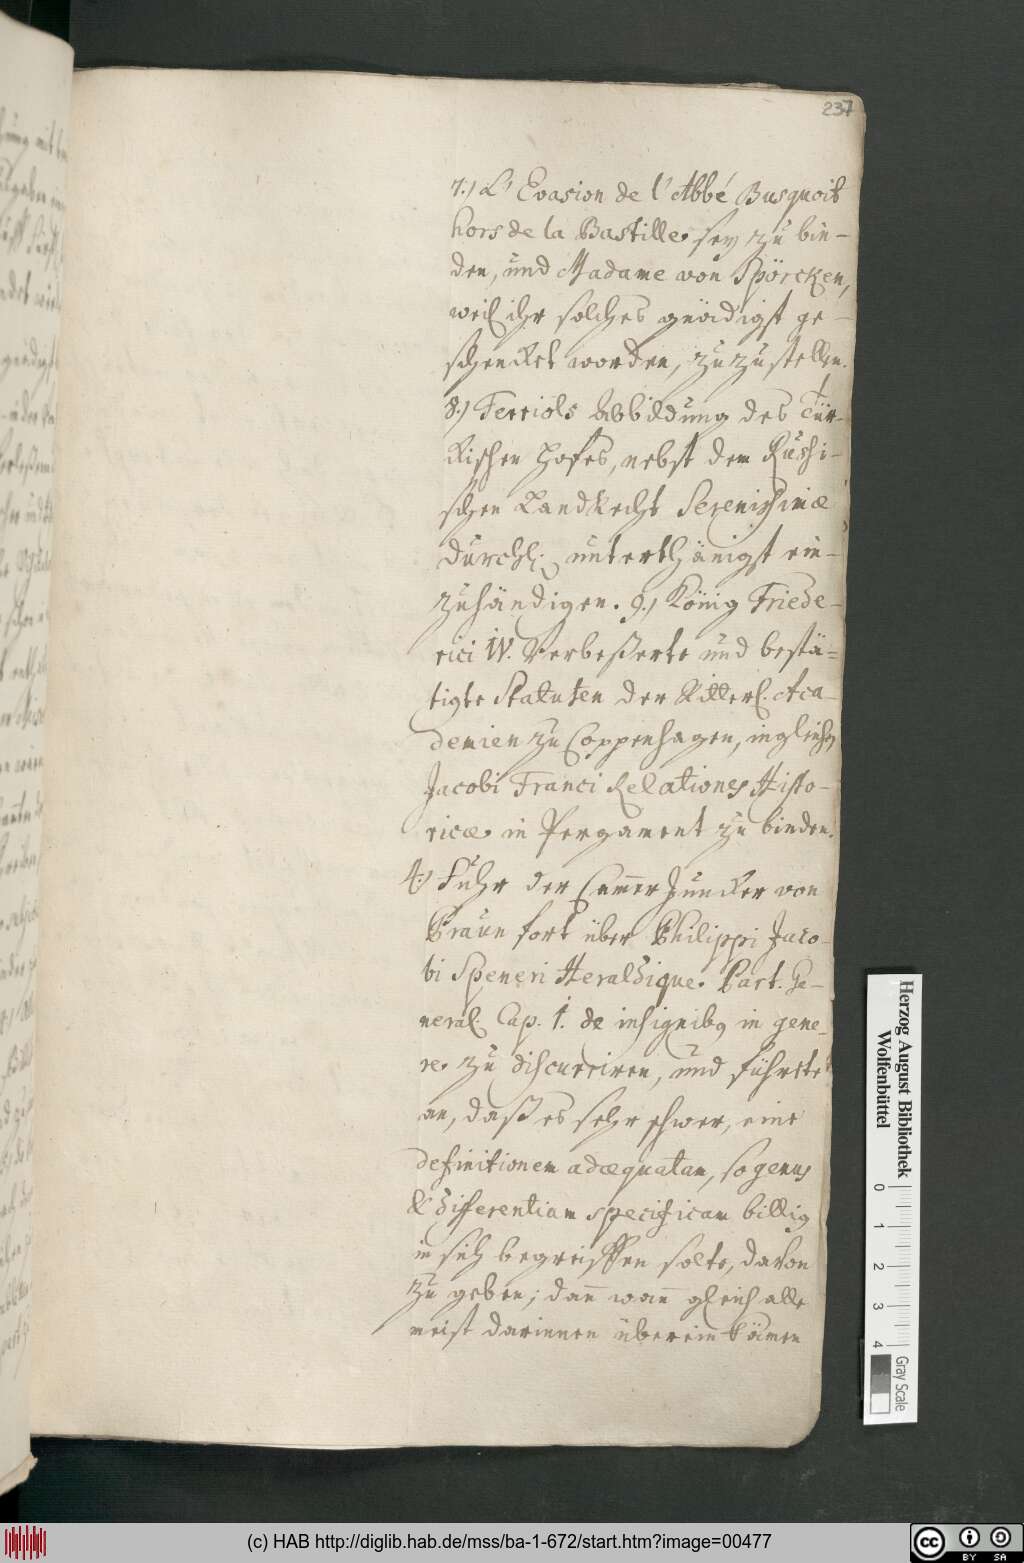 237
7.) L' Evasion de l'Abbé Busquoit
hors de la Bastille. sey zu bin-
den, und Madame von Spörcken,
weil ihr solches gnädigst ge-
schencket worden, zuzustellen.
8.) Ferriols Abbildung des Tür-
kischen Hofes, nebst dem Russi-
schen LandRecht Serenissimæ
Durchl. unterthänigst ein-
zuhändigen. 9.) König Friede-
rici IV. Verbeßerte und bestä-
tigte Statuten der Ritterl. Aca-
demien zu Coppenhagen, ingleichen
Jacobi Franci Relationes Histo-
ricæ. in Pergament zu binden.
4.) Fuhr der Cammer Juncker von
Braun fort über Philippi Jaco-
bi Speneri Heraldique. Part. Ge-
neral. Cap. 1. de insignibq in gene-
re. zu discurriren, und führete
an, daß es sehr schwer, eine
definitionem adæquatam, so genus
& differentiam specificam billig
in sich begreiffen solte, davon
zu geben; dañ wañ gleich alle
meist darinnen überein kämen
Herzog August Bibliothek
Wolfenbüttel
0 1 2 3 4
Gray Scale
(c) HAB http://diglib.hab.de/mss/ba-1-672/start.htm?image=00477
cc BY SA